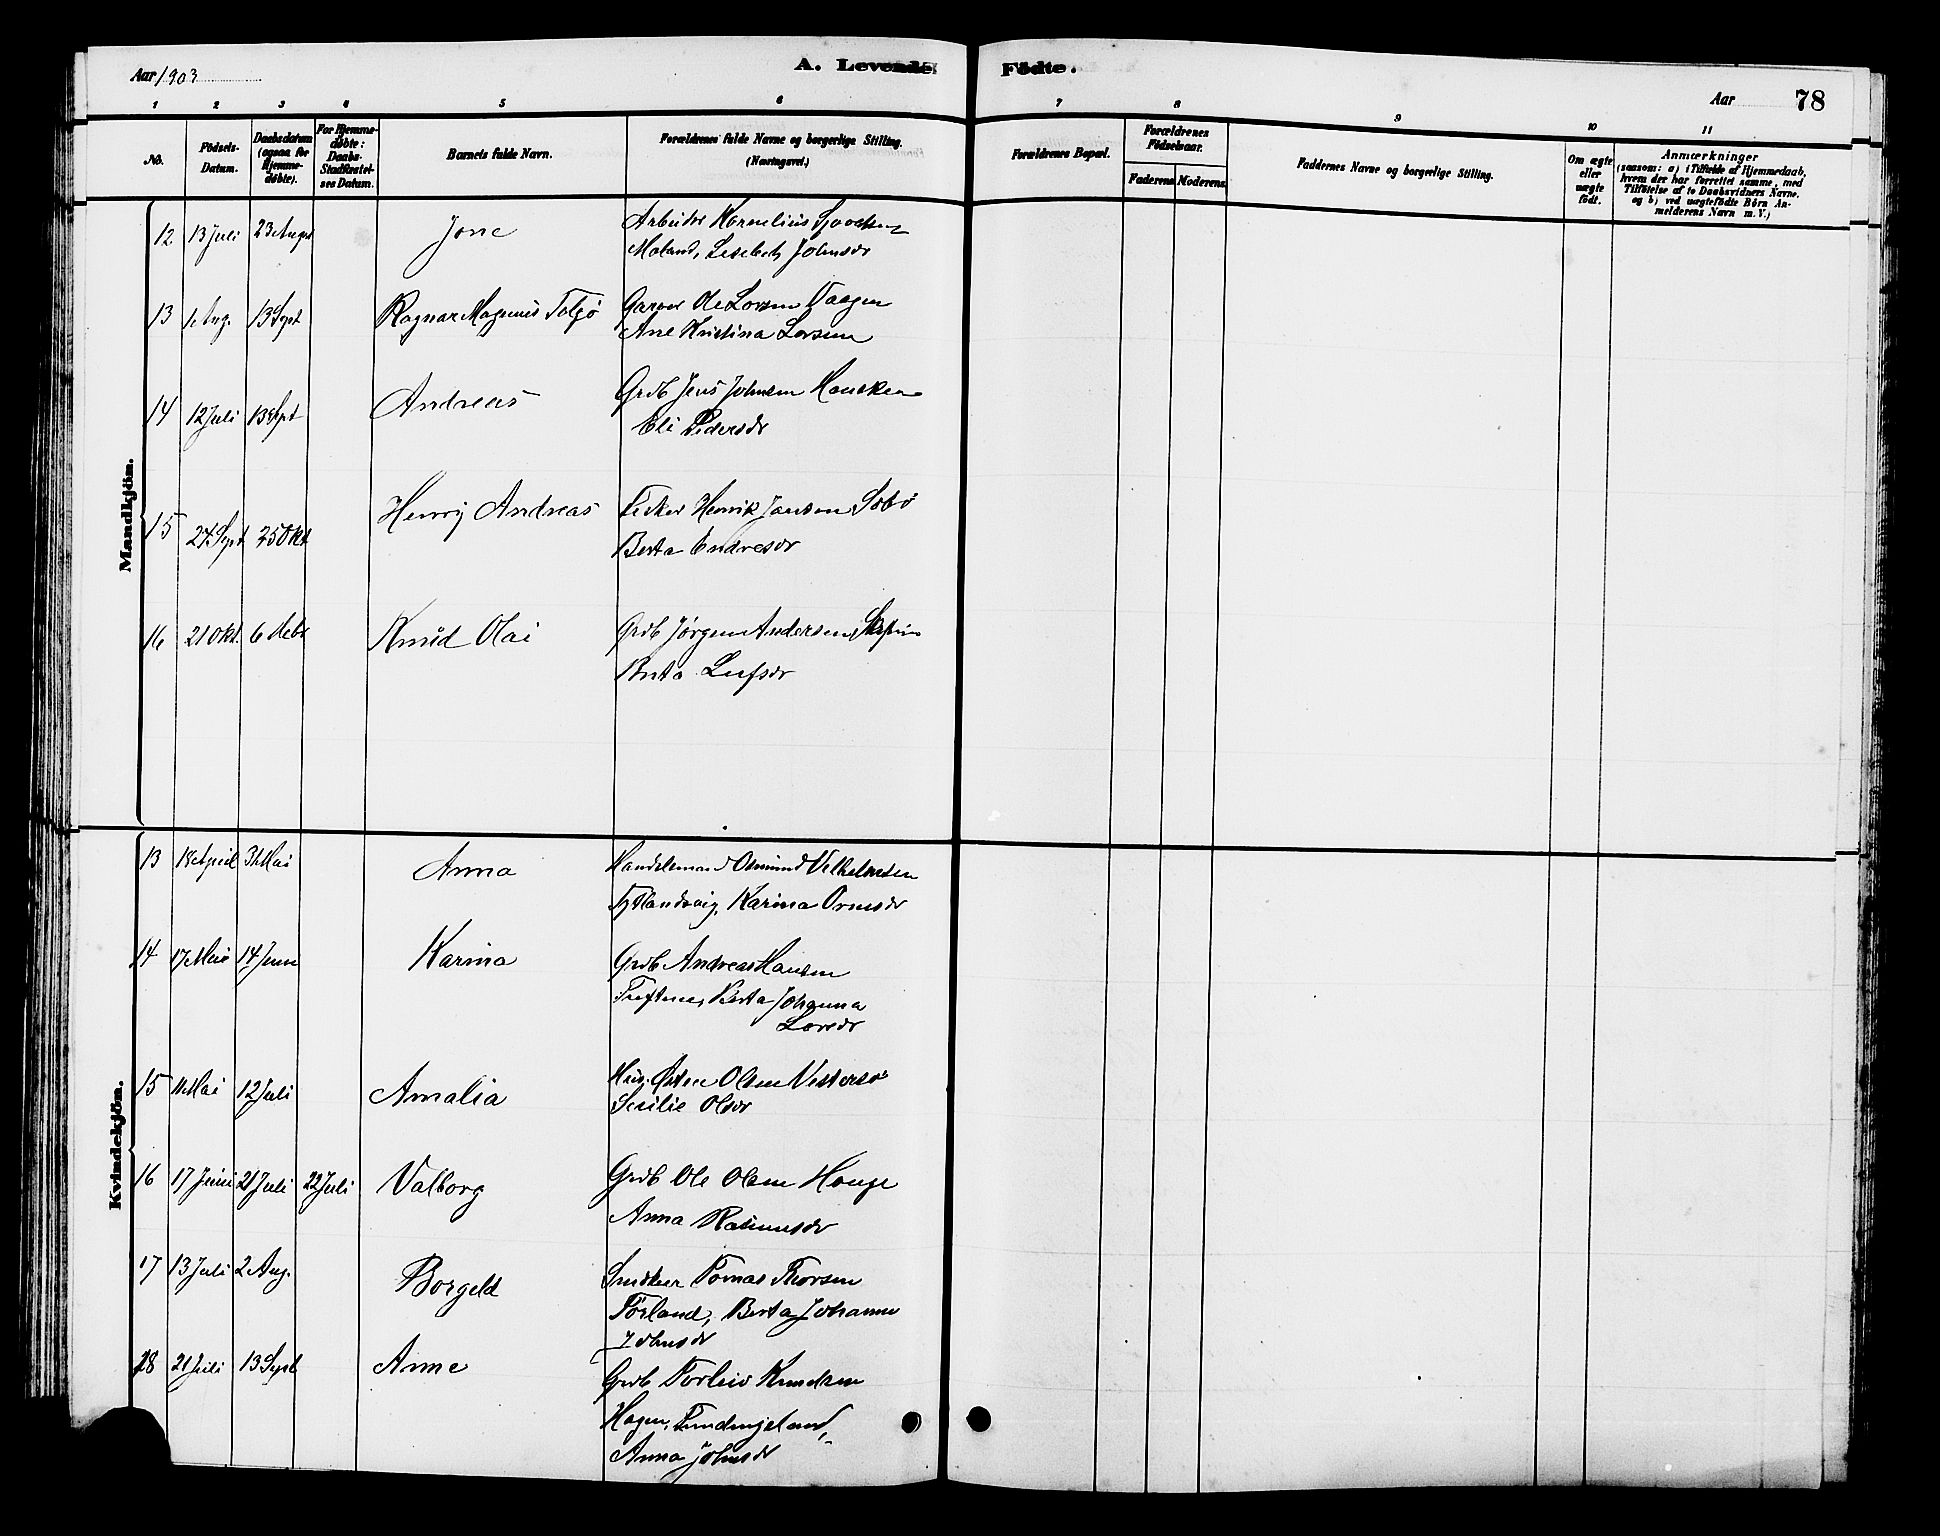 Aar 1903
A. Levende Födte.
Aar 78
1 2 3 4 5 6 7 8 9 10 11
No.
Födsels-
Datum.
Daabsdatum
(ogsaa for
Hjemme-
döbte).
For Hjemme-
döbte:
Daabs-
Stadfæstel-
ses Datum.
Barnets fulde Navn.
Forældrenes fulde Navne og borgerlige Stilling.
(Næringsvei.)
Forældrenes Bopæl.
Forældrenes
Födselsaar.
Faderens Moderens
Faddernes Navne og borgerlige Stilling.
Om ægte
eller
uægte
födt.
Anmærkninger
(saasom: a) i Tilfælde af Hjemmedaab,
hvem der har forrettet samme, med
Tilföielse af to Daabsvidners Navne,
og b) ved uægtefödte Börn An-
melderens Navn m. V.)
Mandkjön.
12 13 Juli 23 August Jone Arbeider Kornelius
Moland, Lisebet Johnsdr
13 1 Aug. 13 Sept Ragnar Magnus Tolgö Garver Ole Larsen Vaagen
Ane Kristina Larsen
14 12 Juli 13 Sept Andreas Grdb Jens Johnsen Hausken
Eli Pedersdr
15 27 Sept 25 Okt Henrij Andreas Fisker Henrik Jansen Sobö
Berta Endresdr
16 21 Okt. 6 Debr Knud Olai Grdb Jörgen Andersen
Berta Leifsdr
Kvindekjön.
13 18 April 31 Mai Anna Handelsmand Osmund Vilhelmsen
Karina Ormsdr
14 17 Mai 14 Juni Karina Grdb Andreas Hansen
Tuftene, Berta Johanna
Larsdr
15 11 Mai 12 Juli Amalia Östen Olsen Vestersö
Sesilie Olsdr
16 17 Juni 21 Juli 22 Juli Valborg Grdb Ole Olsen Hauge
Anna Rasmusdr
17 13 Juli 2 Aug. Borgeld Snedker Tomas Thorsen
Förland, Berta Johanne
Johnsdr
18 21 Juli 13 Sept Anne Grdb Torleiv Knudsen
Hagen,
Anna Johnsdr